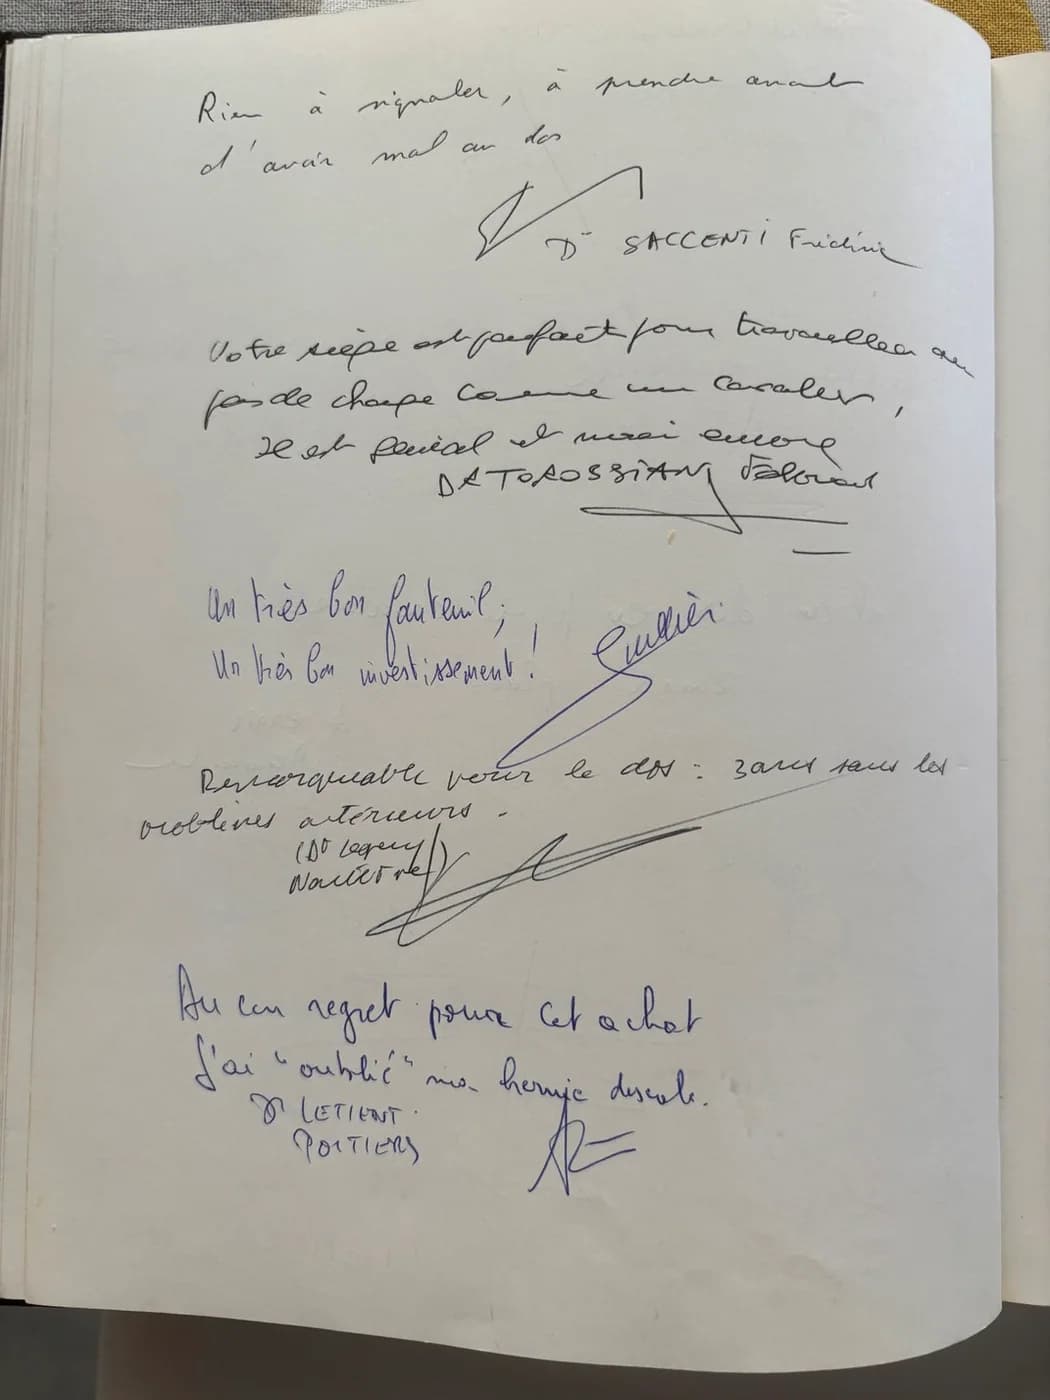 Rien à signaler, à prendre avant
d'avoir mal au dos
Dr SACCENTI Frédéric
Votre siège est parfait pour travailler au
pas de charge comme un cavalier,
Il est génial et merci encore
DR TOROSSIAN Edouard
Un très bon fauteuil,
Un très bon investissement !
Remarquable pour le dos : 3 ans sans les
problèmes antérieurs.
(Dr
Aucun regret pour cet achat
J'ai "oublié" ma hernie discale.
Dr LETIENT.
POITIERS